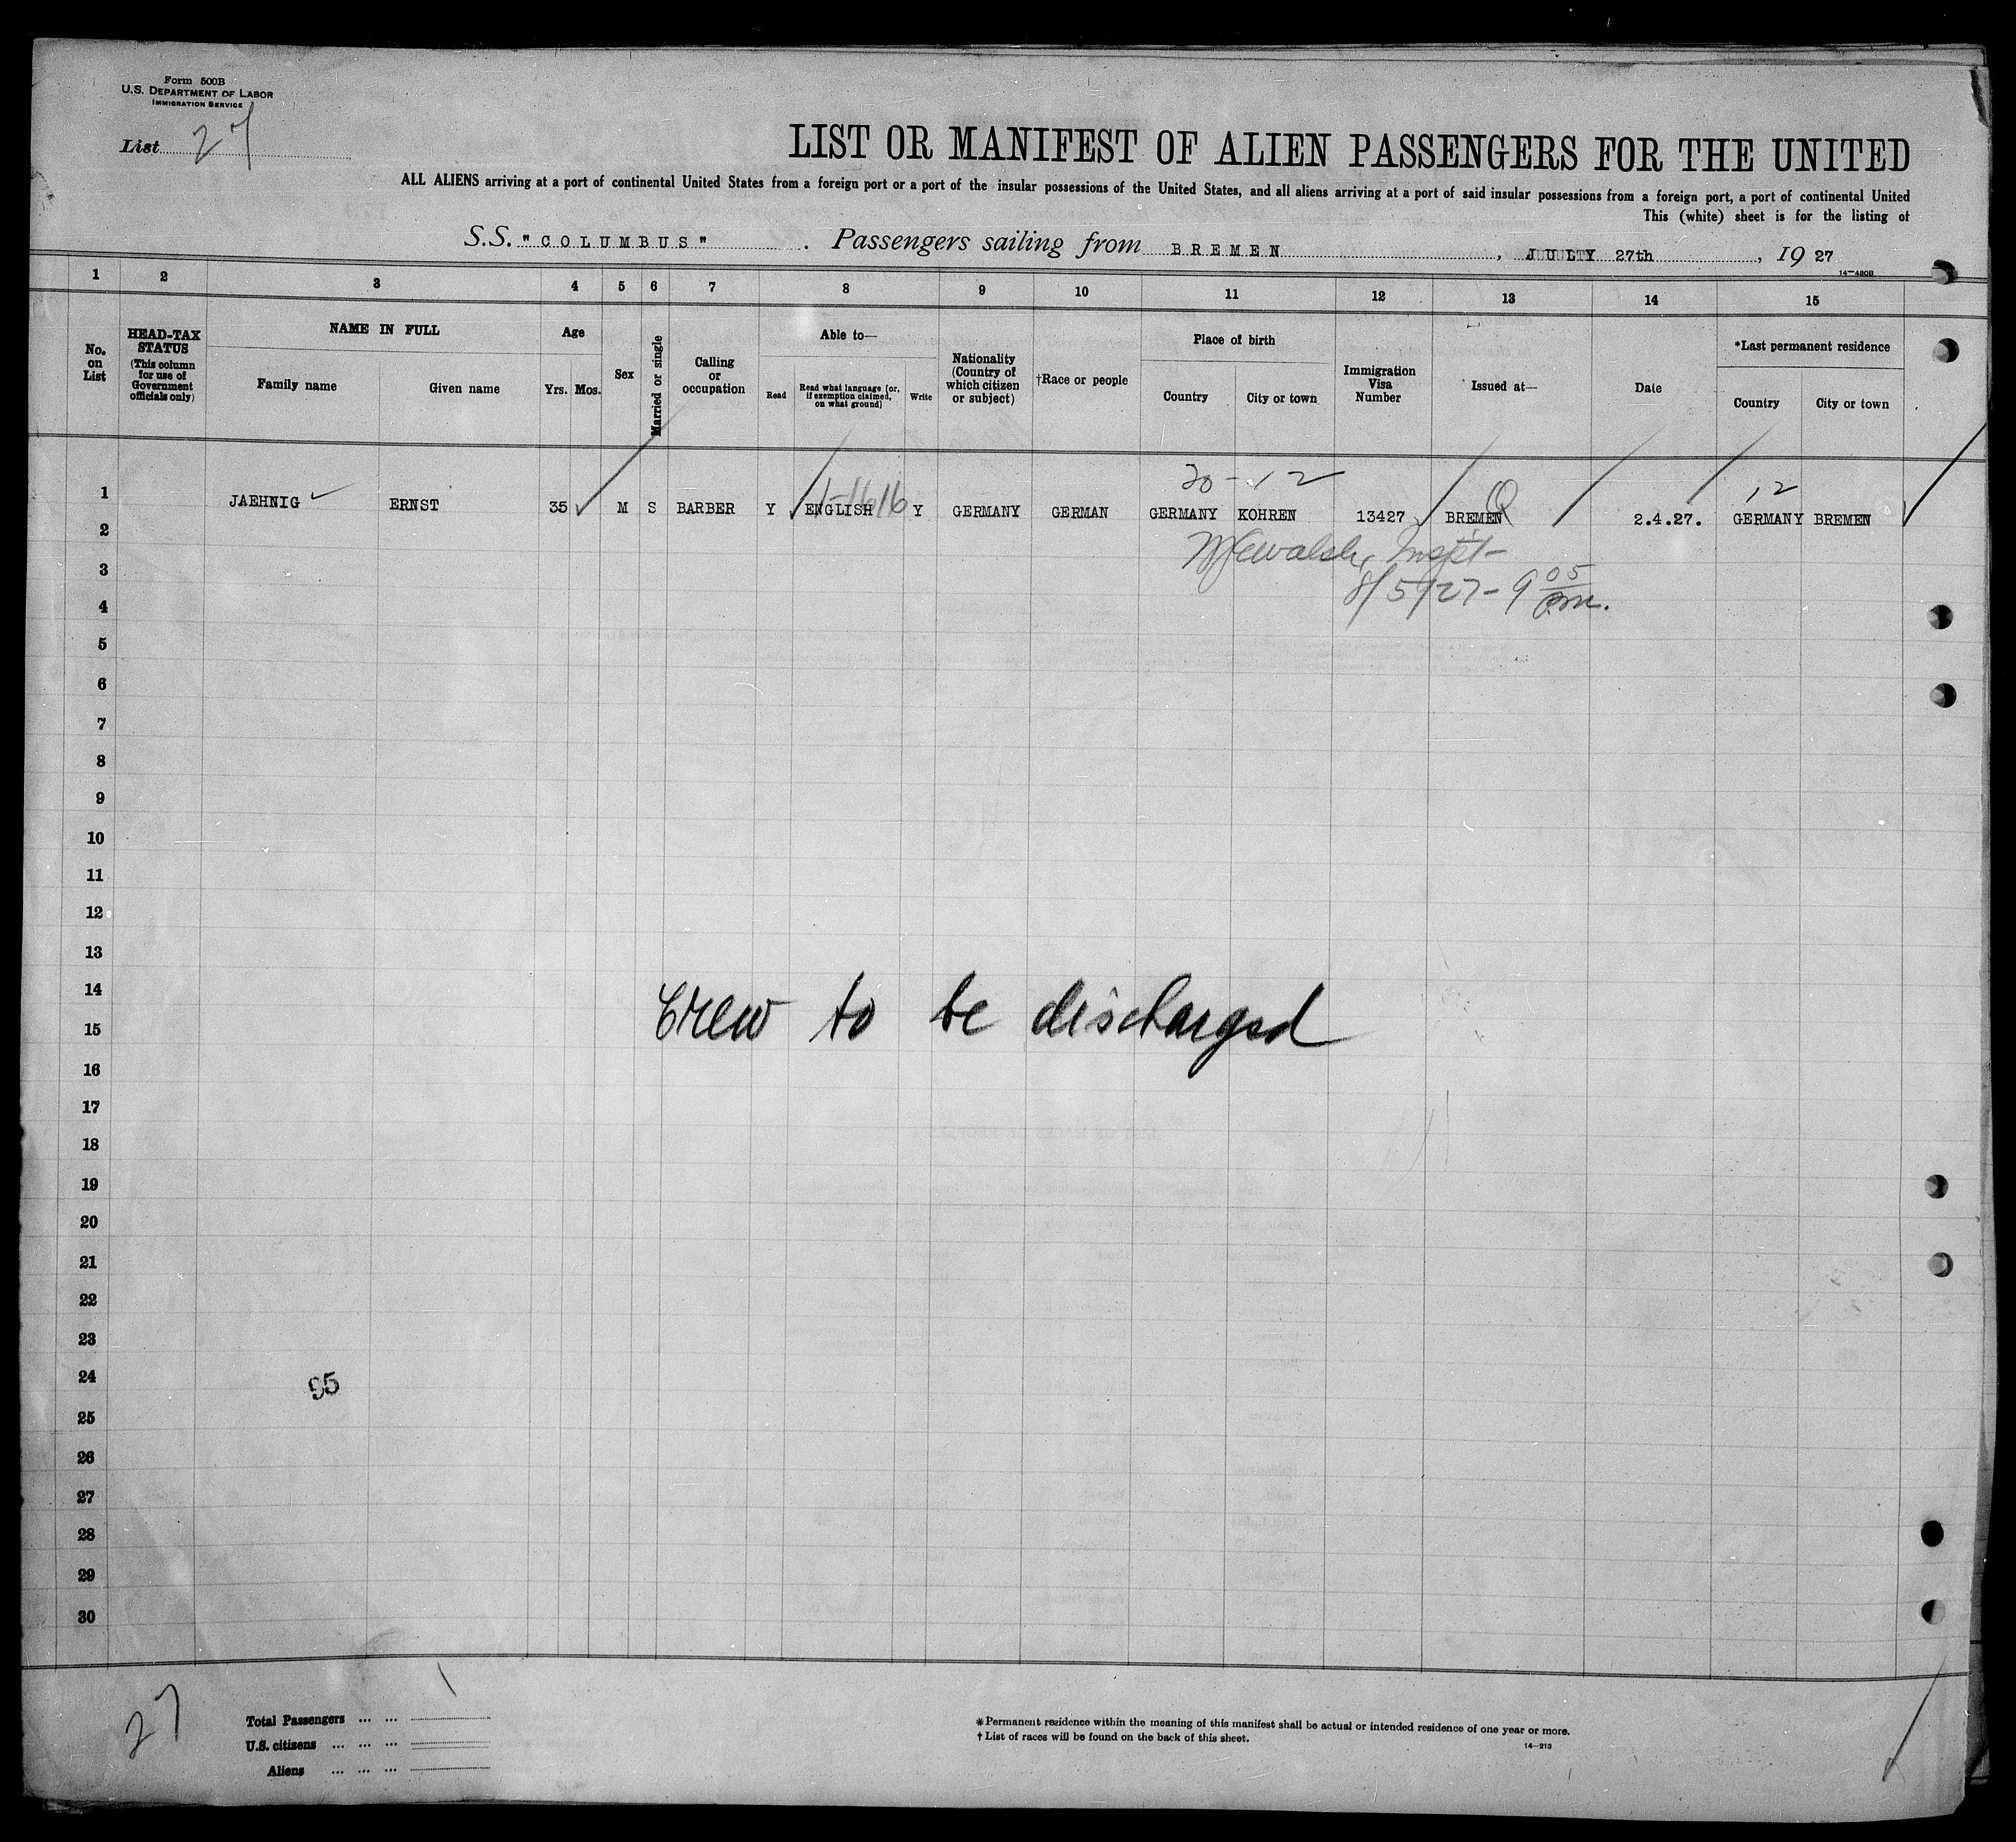 Form 500B
U.S. DEPARTMENT OF LABOR
IMMIGRATION SERVICE
List 27
LIST OR MANIFEST OF ALIEN PASSENGERS FOR THE UNITED
ALL ALIENS arriving at a port of continental United States from a foreign port or a port of the insular possessions of the United States, and all aliens arriving at a port of said insular possessions from a foreign port, a port of continental United
This (white) sheet is for the listing of
S.S. "COLUMBUS" . Passengers sailing from BREMEN , JULY 27th , 19 27
14-480B
1 2 3 4 5 6 7 8 9 10 11 12 13 14 15
No. on List
HEAD-TAX STATUS (This column for use of Government officials only)
NAME IN FULL
Family name
Given name
Age
Yrs. Mos.
Sex
Married or single
Calling or occupation
Able to—
Read
Read what language [or, if exemption claimed, on what ground]
Write
Nationality (Country of which citizen or subject)
†Race or people
Place of birth
Country
City or town
Immigration Visa Number
Issued at—
Date
*Last permanent residence
Country
City or town
20-12
12
1 JAEHNIG ERNST 35 M S BARBER Y ENGLISH Y GERMANY GERMAN GERMANY KOHREN 13427 BREMEN 2.4.27. GERMANY BREMEN
2
3
8/5/27-9 05
4
5
6
7
8
9
10
11
12
13
14
Crew to be dischargsd
15
16
17
18
19
20
21
22
23
24
95
25
26
27
28
29
30
27
Total Passengers ... ...
U.S. citizens ... ... ...
Aliens ... ... ...
*Permanent residence within the meaning of this manifest shall be actual or intended residence of one year or more.
†List of races will be found on the back of this sheet.
14-213